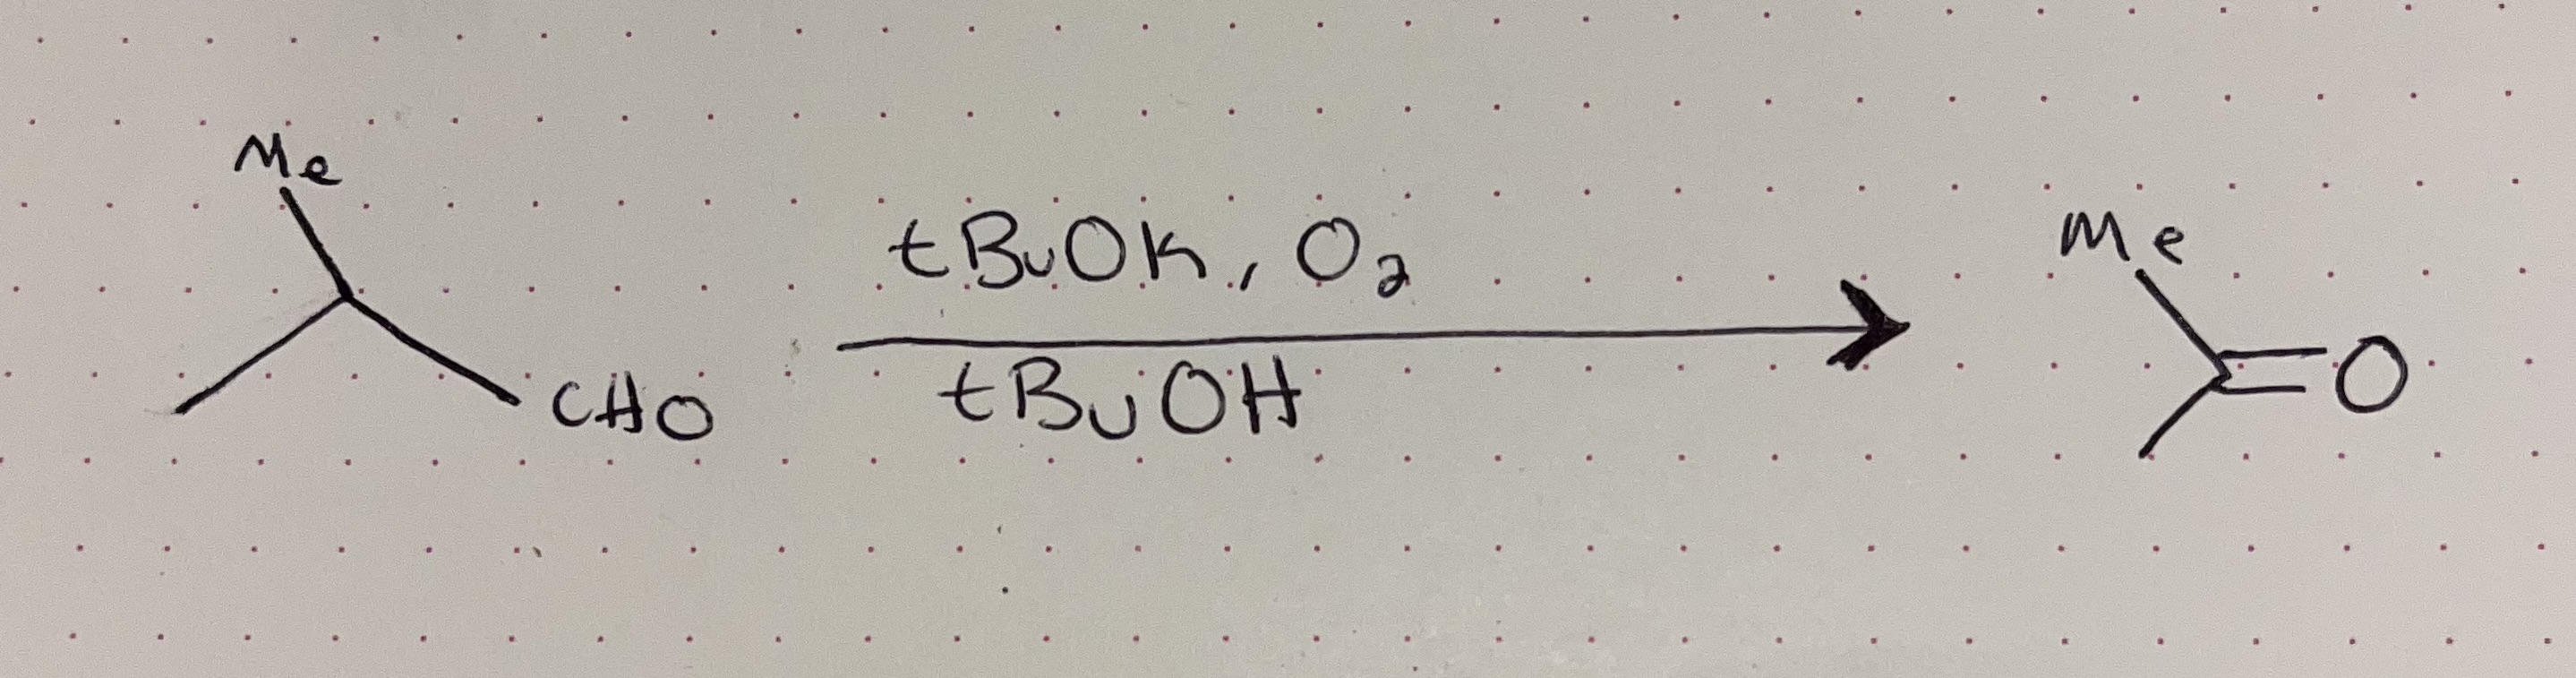 Me
CHO
tBuOK, O₂
tBuOH
Me
O